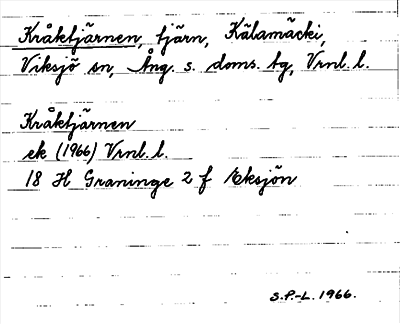 Kråktjärnen, tjärn, Kälamäcki,
Viksjö sn, Ång. s. doms. tg, Vrnl. l.
Kråktjärnen
ek (1966) Vrnl. l.
18 H Graninge 2 f Eksjön
S.P.-L. 1966.